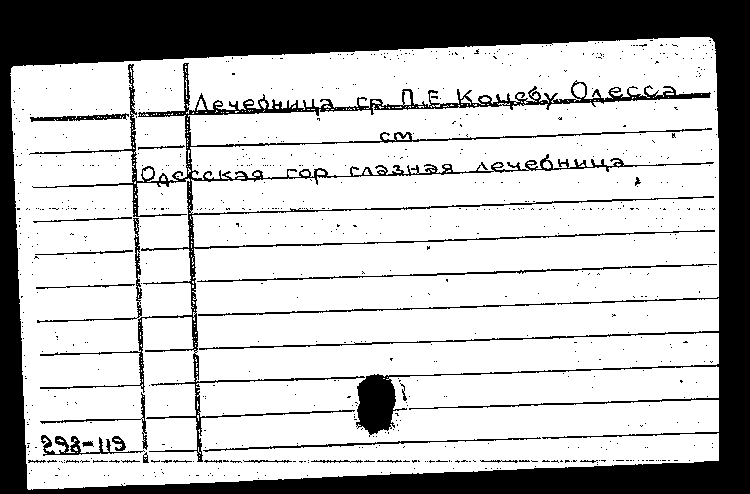 Лечебница гр. П.Е. Коцебу Одесса
см.
Одесская гор. глазная лечебница
298-119